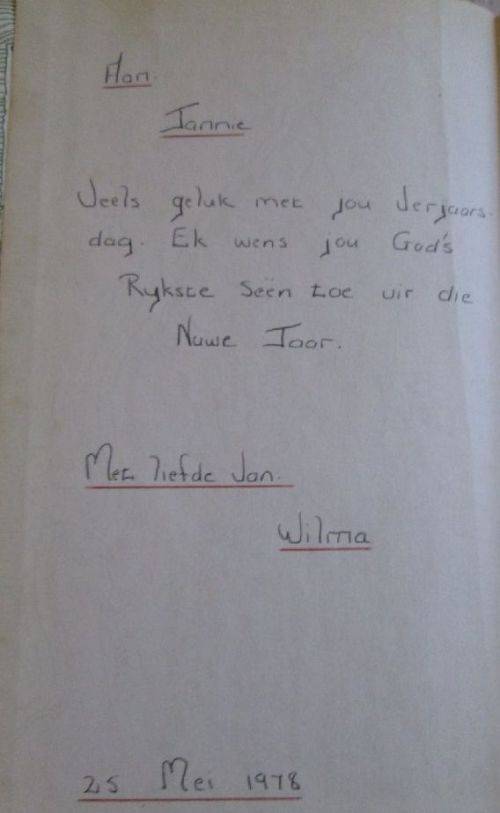 Aan.
Jannie
Veels geluk met jou Verjaars-
dag. Ek wens jou God's
Rykste Seën toe vir die
Nuwe Jaar.
Met liefde Van.
Wilma
25 Mei 1978